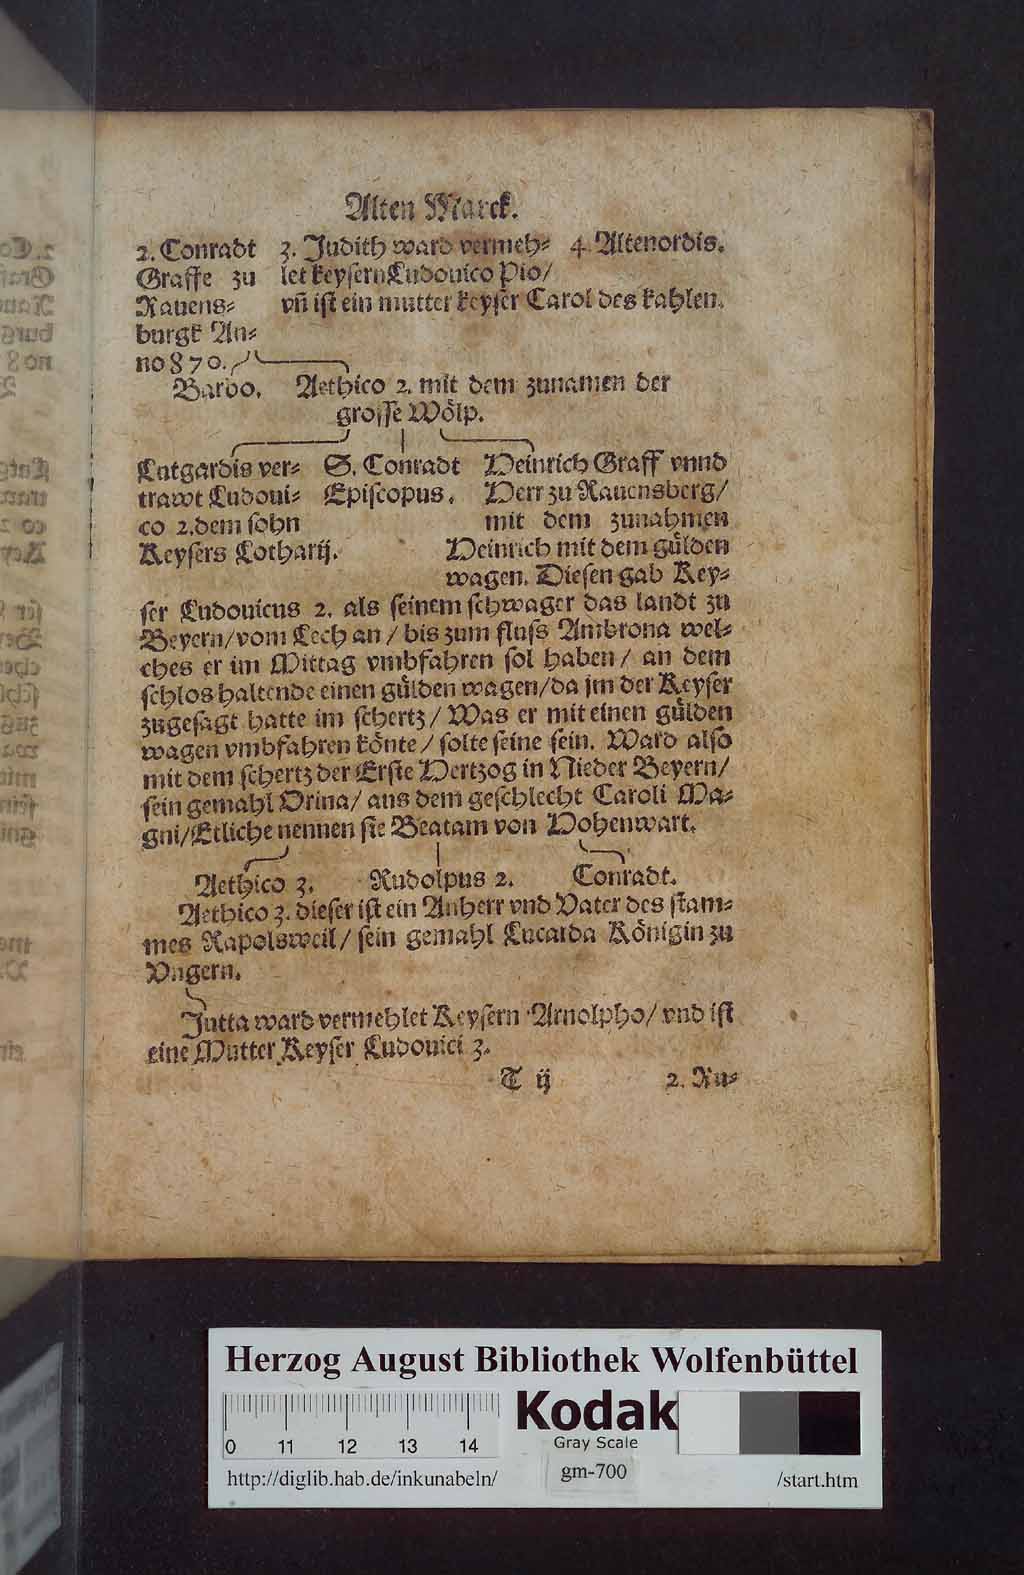 Alten Marck.
2. Conradt
Graffe zu
Rauens⸗
burgk An⸗
no 870.
3. Judith ward vermeh⸗
let keysern Ludouico Pio/
vñ ist ein mutter keyser Carol des kahlen.
4. Altenordis.
Bardo. Aethico 2. mit dem zunamen der
grosse Wölp.
Lutgardis ver⸗
trawt Ludoui⸗
co 2. dem sohn
Keysers Lotharij.
S. Conradt
Episcopus.
Heinrich Graff vnnd
Herr zu Rauensberg/
mit dem zunahmen
Heinrich mit dem gülden
wagen. Diesen gab Key⸗
ser Ludouicus 2. als seinem schwager das landt zu
Beyern/ vom Lech an/ bis zum fluss Ambrona wel⸗
ches er im Mittag vmbfahren sol haben/ an dem
schlos haltende einen gülden wagen/ da jm der Keyser
zugesagt hatte im schertz/ Was er mit einen gülden
wagen vmbfahren könte/ solte seine sein. Ward also
mit dem schertz der Erste Hertzog in Nieder Beyern/
sein gemahl Orina/ aus dem geschlecht Caroli Ma⸗
gni/ Etliche nennen sie Beatam von Hohenwart.
Aethico 3. Rudolpus 2. Conradt.
Aethico 3. dieser ist ein Anherr vnd Vater des stam⸗
mes Rapolsweil/ sein gemahl Lucarda Königin zu
Vngern.
Jutta ward vermehlet Keysern Arnolpho/ vnd ist
eine Mutter Keyser Ludouici 3.
T ij 2. Ru⸗
Herzog August Bibliothek Wolfenbüttel
0 11 12 13 14
Kodak
Gray Scale
gm-700
http://diglib.hab.de/inkunabeln/ /start.htm